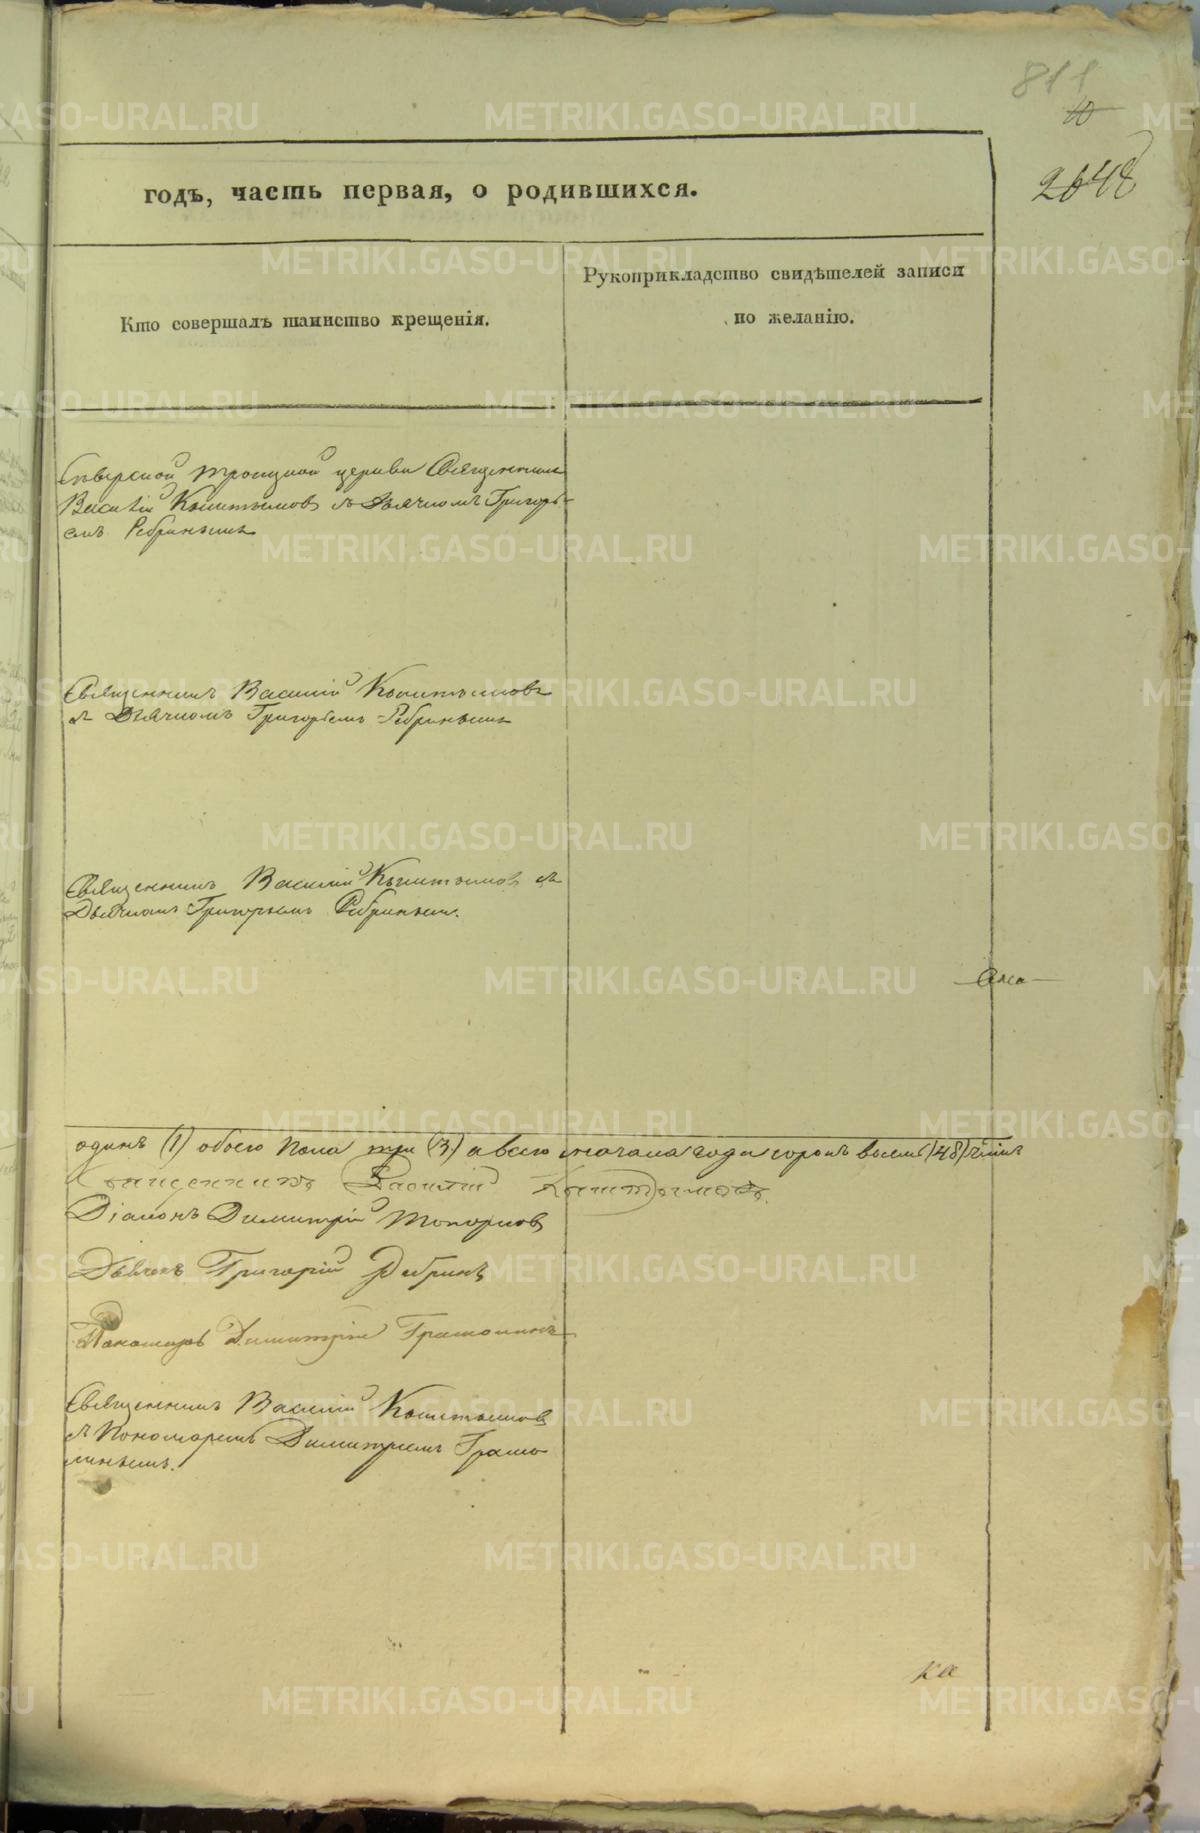 811
10
2648
годъ, часть первая, о родившихся.
Кто совершалъ таинство крещенія.
Рукоприкладство свидѣтелей записи
по желанію.
Сѣверской Троицкой церкви Священникъ
Василій Кыштымовъ съ Дьячкомъ Григорь-
емъ Ребринымъ
Священникъ Василій Кыштымовъ
съ Дьячкомъ Григорьемъ Ребринымъ
Священникъ Василій Кыштымовъ съ
Дьячкомъ Григорьемъ Ребринымъ.
одинъ (1) обоего пола три (3) а всего сначала года сорокъ восемь (48)
Священникъ Василій Кыштымовъ.
Діаконъ Димитрій Топорковъ
Дьячекъ Григорій Ребринъ
Пономарь Димитрій Грамолинъ
Священникъ Василій Кыштымовъ
съ Пономаремъ Димитріемъ Грамо
линымъ.
ка
METRIKI.GASO-URAL.RU